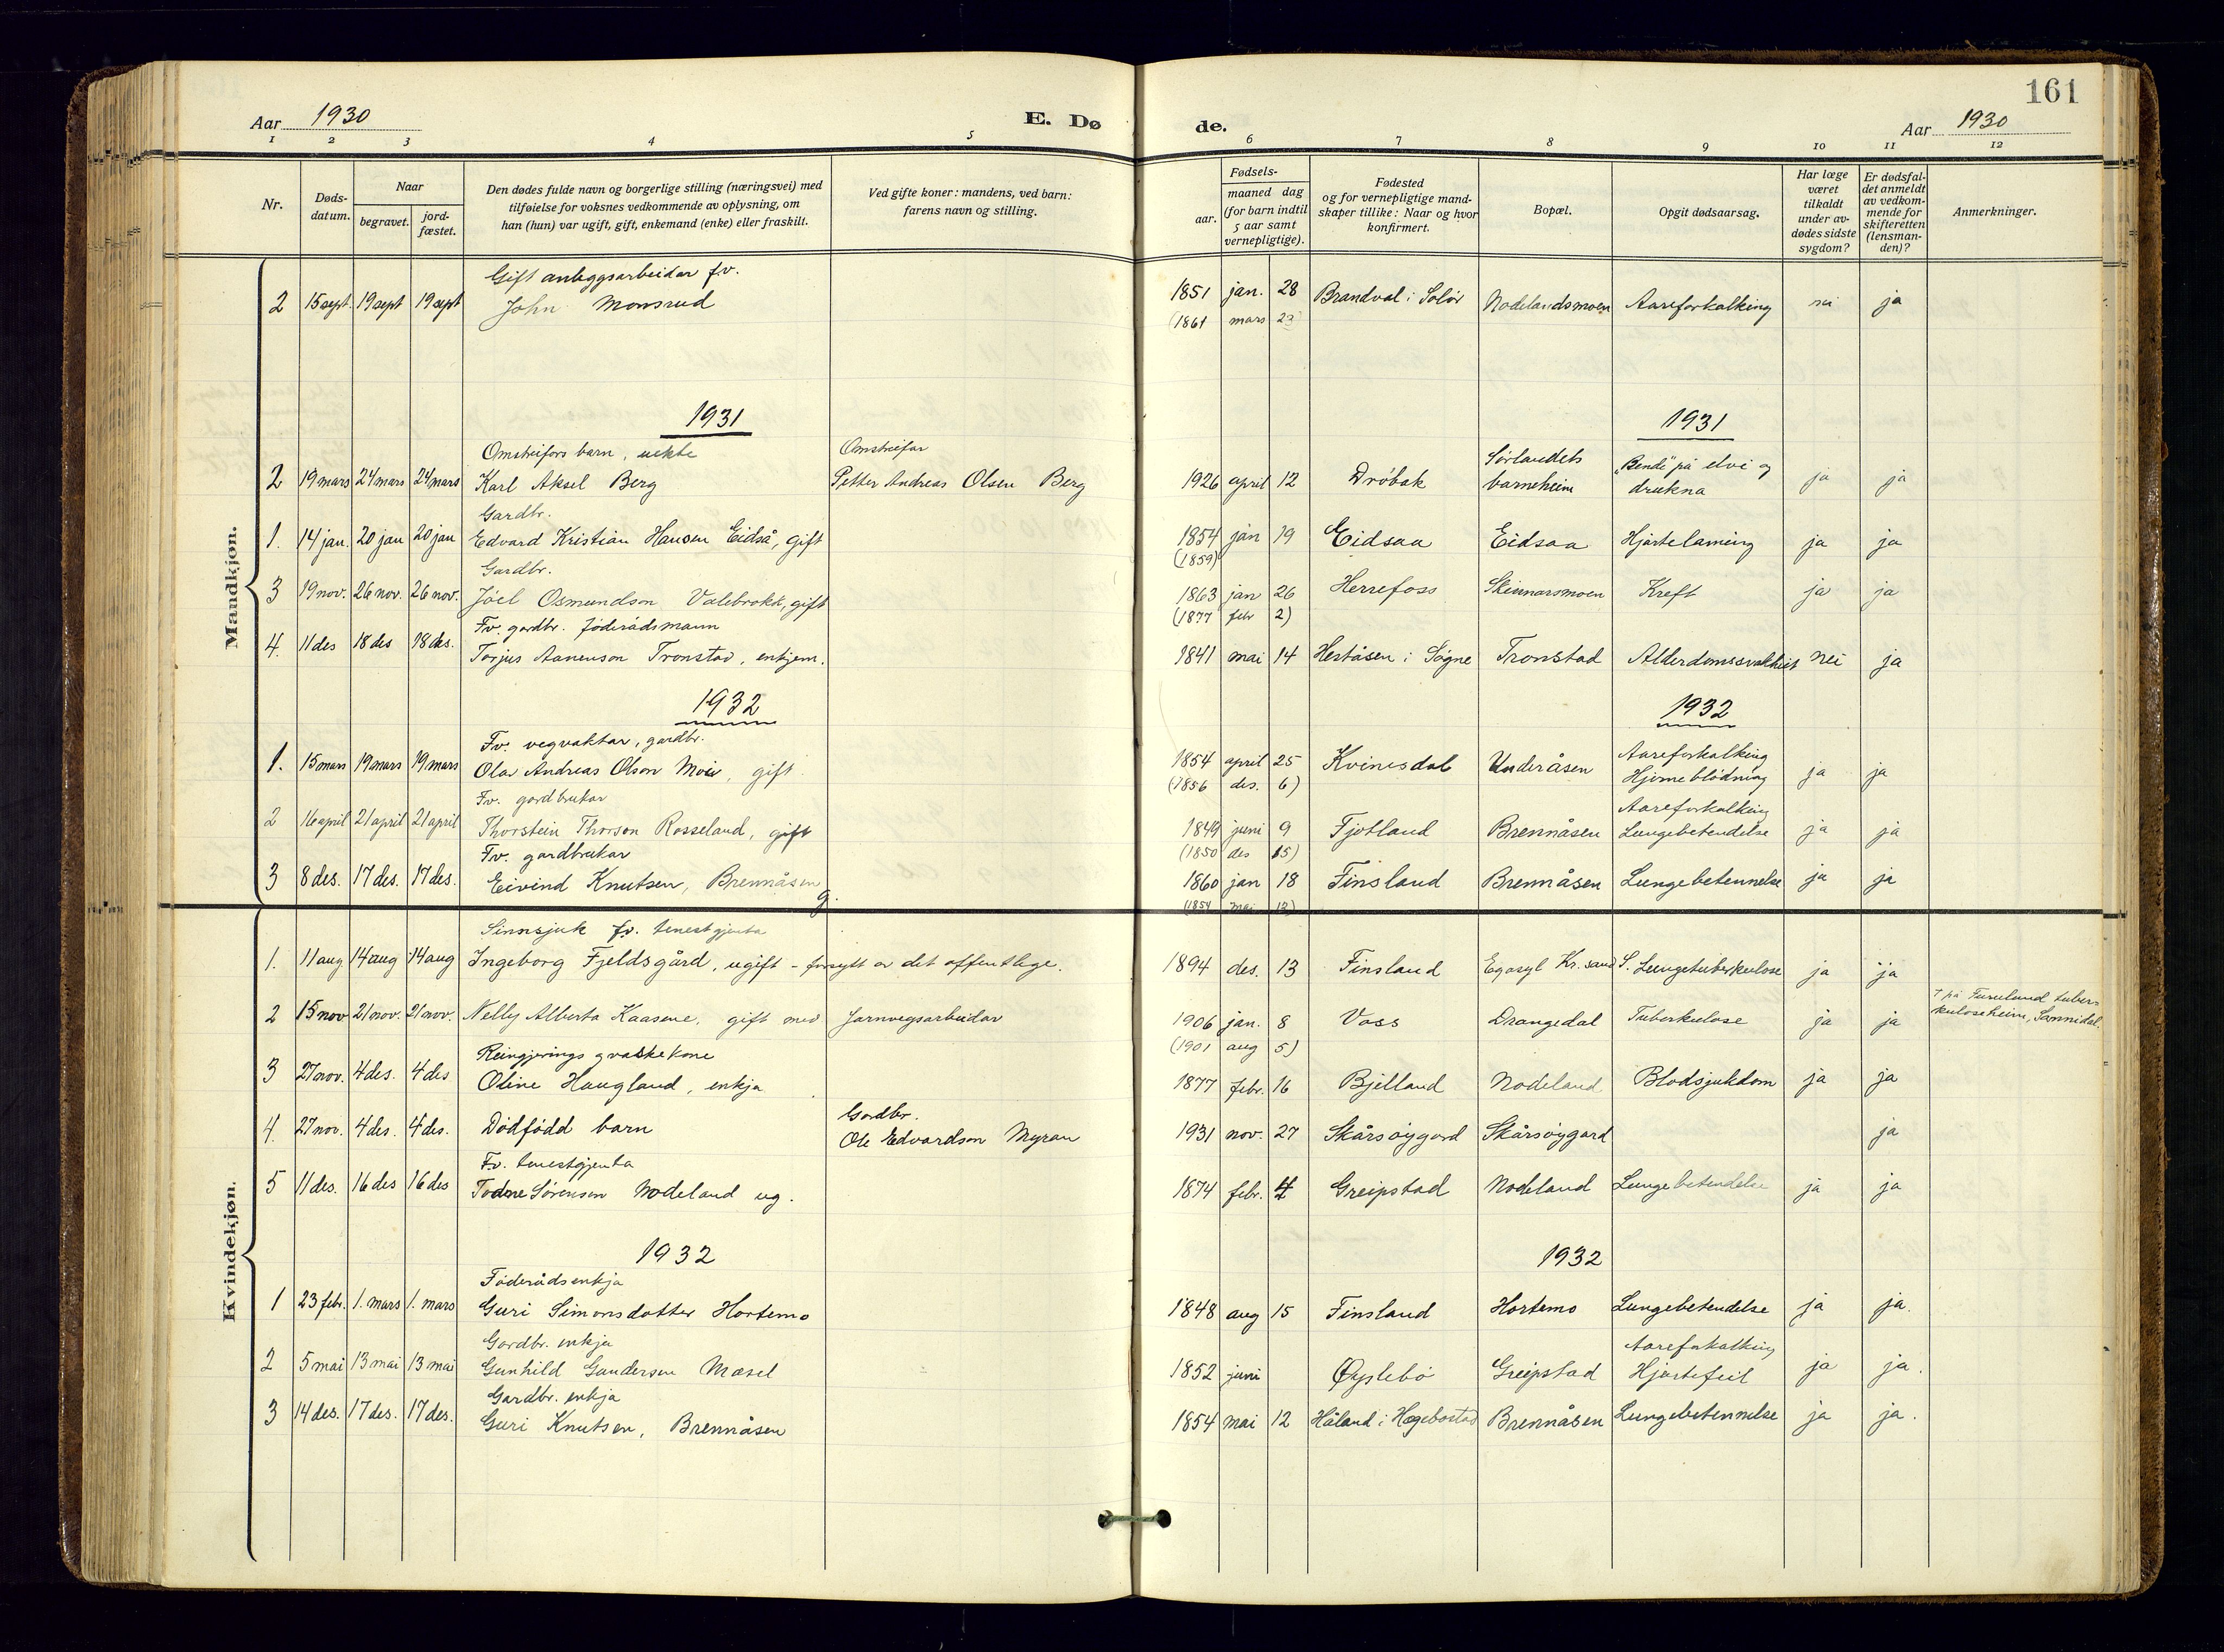 161
Aar 1930 E. Dø de. Aar 1930
1 2 3 4 5 6 7 8 9 10 11 12
Nr. Døds-datum. Naar begravet. jord-fæstet. Den dødes fulde navn og borgerlige stilling (næringsvei) med tilføielse for voksnes vedkommende av oplysning, om han (hun) var ugift, gift, enkemand (enke) eller fraskilt. Ved gifte koner: mandens, ved barn: farens navn og stilling. Fødsels- aar. maaned dag (for barn indtil 5 aar samt vernepligtige). Fødested og for vernepligtige mand-skaper tillike: Naar og hvor konfirmert. Bopæl. Opgit dødsaarsag. Har læge været tilkaldt under av-dødes sidste sygdom? Er dødsfal-det anmeldt av vedkom-mende for skifteretten (lensman-den)? Anmerkninger.
Mandkjøn.
Gift anleggsarbeidar fv.
2 15 sept. 19 sept 19 sept John Monsrud 1851 jan. 28 Brandval i Solør Nodelandsmoen Aareforkalking nei ja
(1861 mars 23)
1931 1931
Omstreifars barn, uekte Omstreifar Sørlandets „Bende" på elvi og
2 19 mars 24 mars 24 mars Karl Aksel Berg Petter Andreas Olsen Berg 1926 april 12 Drøbak barneheim drukna ja ja
Gardbr.
1. 14 jan. 20 jan 20 jan Edvard Kristian Hansen Eidså, gift 1854 jan 19 Eidsaa Eidsaa Hjartelaming ja ja
(1859)
Gardbr.
3 19 nov. 26 nov. 26 nov. Joel Osmundson Valebrokk, gift 1863 jan 26 Herrefoss Skinnarsmoen Kreft ja ja
(1877 febr 2)
Fv. gardbr. føderådsmann
4. 11 des 18 des 18 des. Torjus Aanenson Tronstad, enkjem. 1841 mai 14 Heståsen i Søgne Tronstad Alderdomssvakheit nei ja
1932 1932
Fv. vegvaktar, gardbr. Aareforkalking
1. 15 mars 19 mars 19 mars Olav Andreas Olson Moie, gift 1854 april 25 Kvinesdal Underåsen Hjerneblødning ja ja
(1856 des. 6)
Fv. gardbrukar Aareforkalking
2 16 april 21 april 21 april Thorstein Thorson Rosseland, gift 1849 juni 9 Fjotland Brennåsen Lungebetendelse ja ja
(1850 des 15)
Fv. gardbrukar
3 8 des. 17 des. 17 des. Eivind Knutsen, Brennåsen g. 1860 jan 18 Finsland Brennåsen Lungebetennelse ja ja
(1854 mai 12)
Kvindekjøn.
Sinnsjuk fv. tenestgjenta
1. 11 aug 14 aug 14 aug Ingeborg Fjeldsgård, ugift - forsytt av det offentlege. 1894 des. 13 Finsland Egasyl Kr.sand S. Lungetuberkulose ja ja
† på Furuland tuber-
2 15 nov 21 nov. 21 nov. Nelly Alberta Kaasene, gift med Jarnvegsarbeidar 1906 jan. 8 Voss Drangedal Tuberkulose ja ja kuloseheim, Sannidal.
(1901 aug 5)
Reingjerings og vaskekone
3 27 nov. 4 des. 4 des Oline Haugland, enkja 1877 febr. 16 Bjelland Nodeland Blodsjukdom ja ja
Gardbr.
4. 27 nov. 4 des. 4 des. Dødfødd barn Ole Edvardson Myran 1931 nov. 27 Skårsøygard Skårsøygard ja
Fv. tenestgjenta
5 11 des. 16 des 16 des Todne Sørensen Nodeland ug. 1874 febr. 4 Greipstad Nodeland Lungebetendelse ja ja
1932 1932
Føderådsenkja
1 23 febr. 1. mars 1. mars Guri Simonsdotter Hortemo 1848 aug 15 Finsland Hortemo Lungebetendelse ja ja.
Gardbr. enkja Aareforkalking
2 5 mai 13 mai 13 mai Gunhild Gundersen Mæsel 1852 juni Øyslebø Greipstad Hjartefeil ja ja.
Gardbr. enkja
3 14 des. 17 des. 17 des. Guri Knutsen, Brennåsen 1854 mai 12 Håland i Hægebostad Brennåsen Lungebetennelse ja ja.